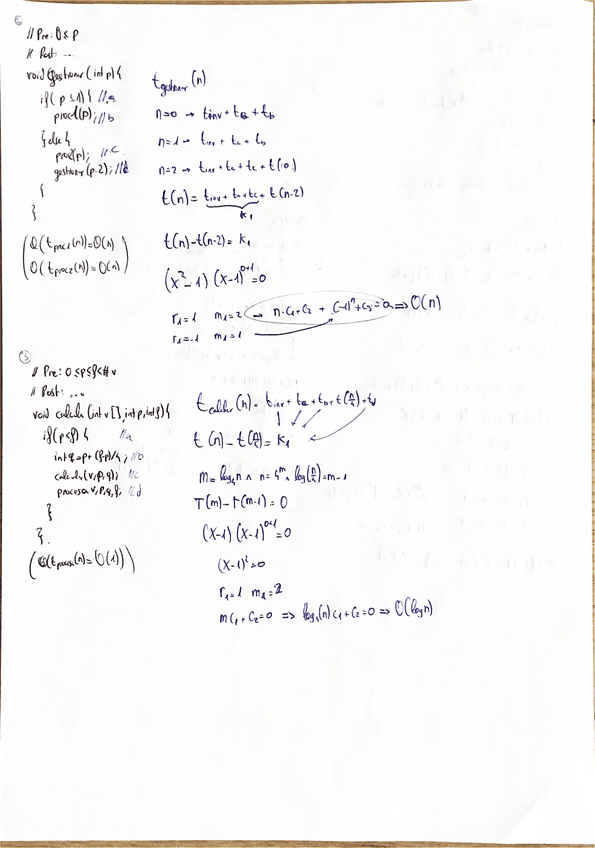 ②
// Pre: 0 ≤ p
// Post: ...
void gestionar (int p) {
if ( p ≤ 1) { //a
proc1(p); //b
} else {
proc2(p); //c
gestionar (p-2); //d
}
}
( O( t proc1 (n)) = O(n)
O( t proc2 (n)) = O(n) )
t gestionar (n)
n=0 → t inv + t a + t b
n=1 → t inv + t a + t b
n=2 → t inv + t a + t c + t(0)
t(n) = t inv + t a + t c + t(n-2)
K₁
t(n) - t(n-2) = K₁
(x² - 1) (x-1)⁰⁺¹ = 0
r₁=1 m₁=2 → n·c₁+c₂ + (-1)ⁿ + c₃ = a ⇒ O(n)
r₁=-1 m₁=1
③
// Pre: 0 ≤ p ≤ f < # v
// Post: ...
void calcula (int v [], int p, int f) {
if (p<f) { //a
int q = p + (f-p)/4; //b
calcula (v, p, q); //c
procesa v, p, q, f; //d
}
}
( O( t procesa (n) = O(1)) )
t calcular (n) = t inv + t a + t b + t(n/4) + t d
t (n) - t(n/4) = K₁
m = log₄n ∧ n = 4ᵐ ∧ log(n/4) = m-1
T(m) - T(m-1) = 0
(x-1) (x-1)⁰⁺¹ = 0
(x-1)² = 0
r₁=1 m₁=2
m c₁ + c₂ = 0 ⇒ log₄(n) c₁ + c₂ = 0 ⇒ O(log n)